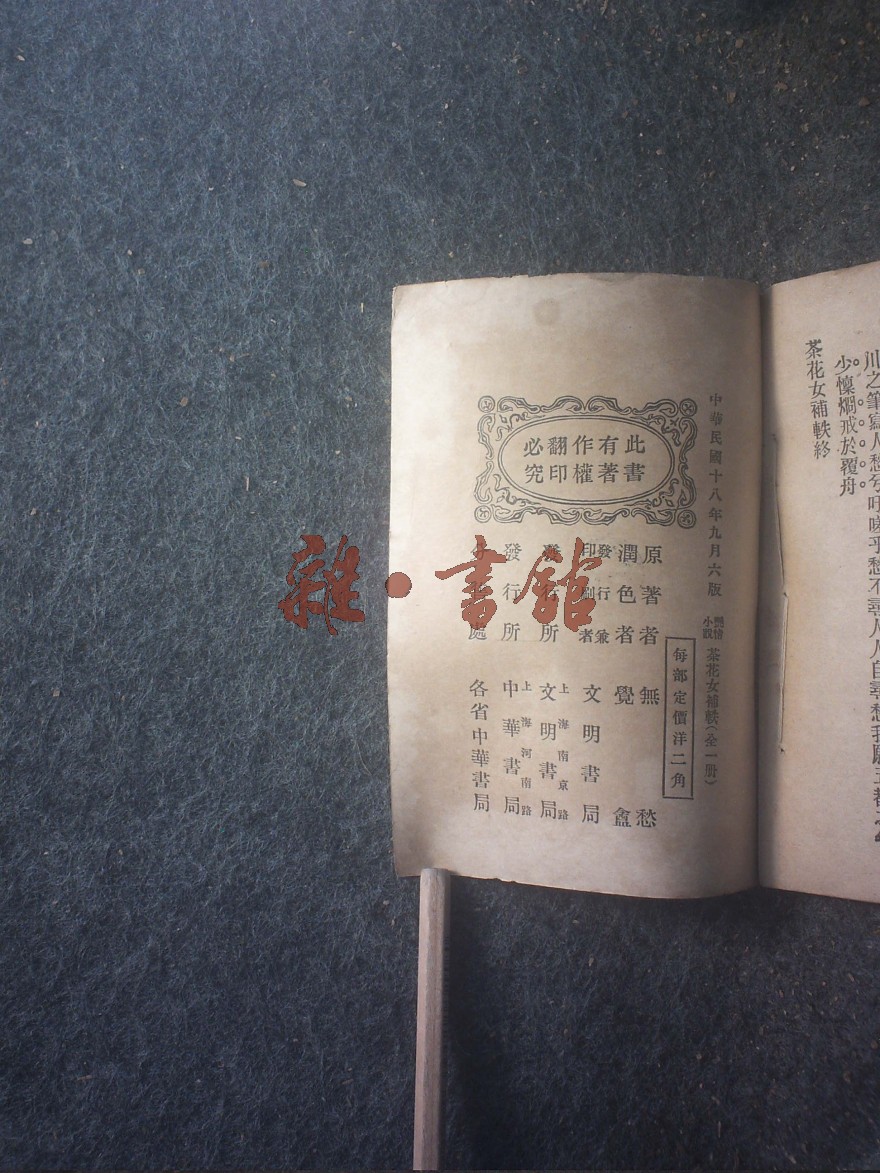 川之筆寫人愁兮吁嗟乎愁不尋人人自尋愁我願
少懍爛戒於覆舟
茶花女補軼終
中華民國十八年九月六版
小說
茶花女補軼(全一册)
每部定價洋二角
此書有著作權翻印必究
原著者 無愁
潤色者 覺盦
發行兼印刷者 文明書局
所 上海南京路 文明書局
發行所 上海河南路 中華書局
處 各省中華書局
雜·書館